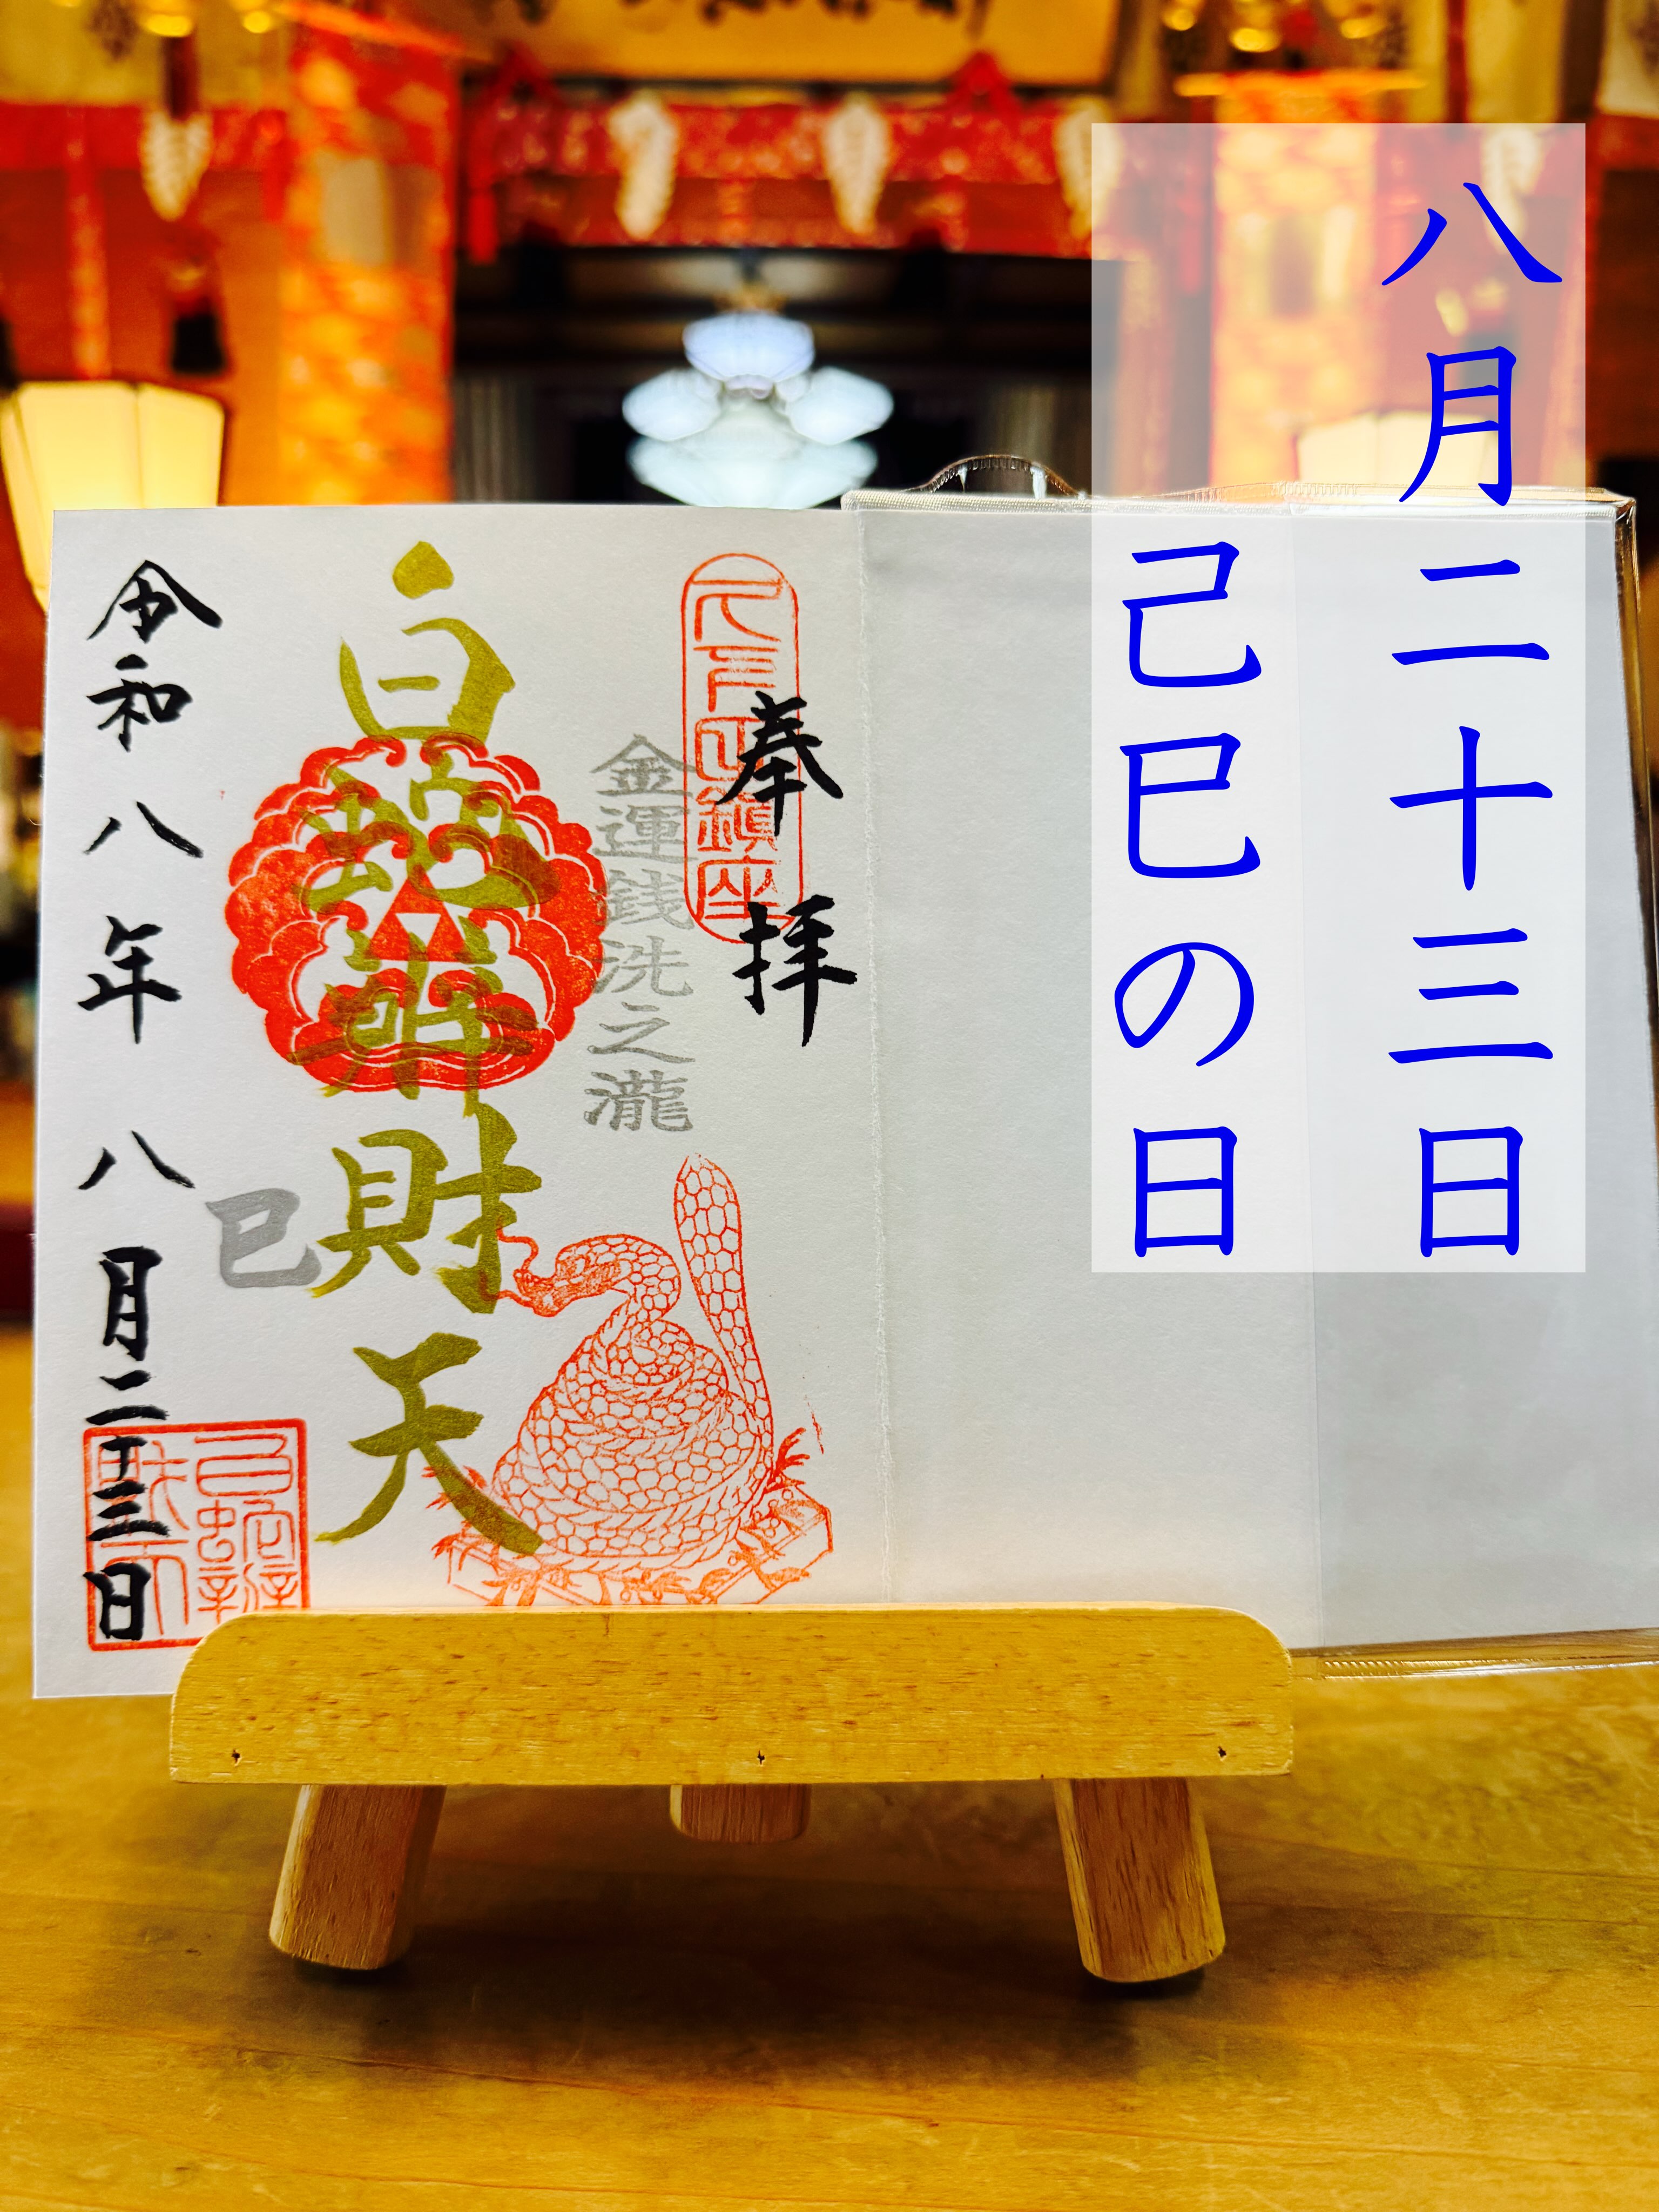 八月二十三日
己巳の日
奉拝
金運銭洗之瀧
白蛇辨財天
巳
令和八年八月二十三日